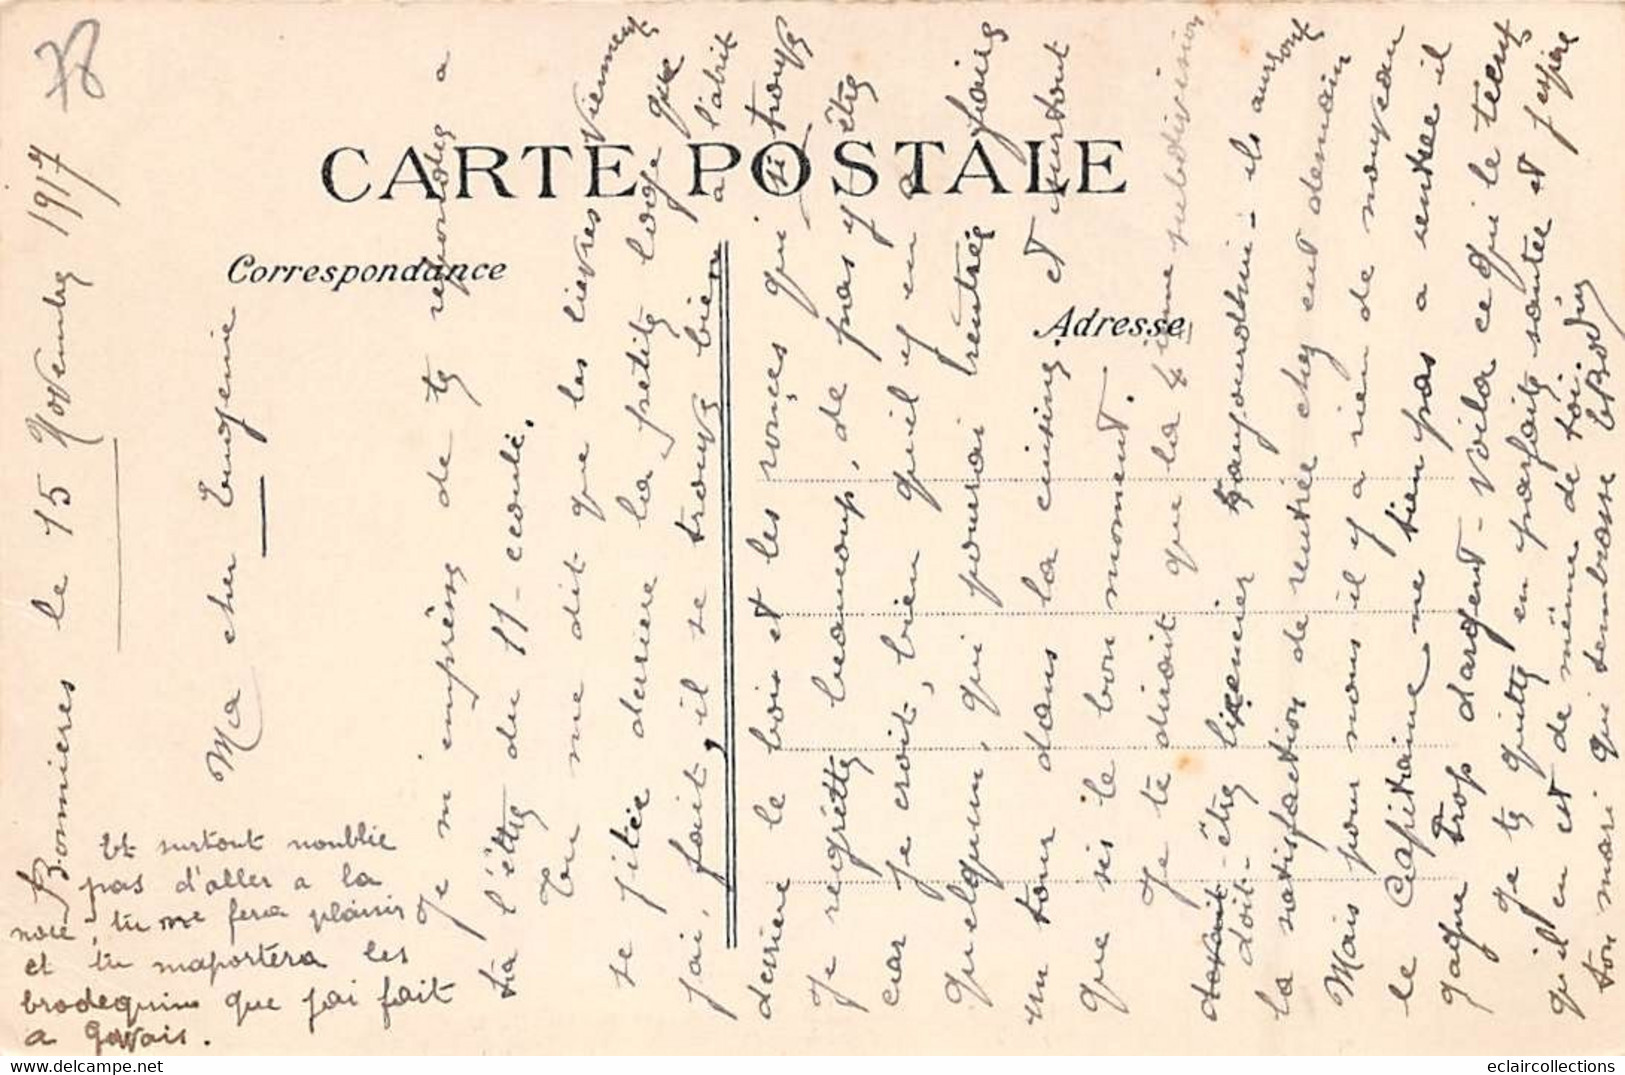 78
CARTE POSTALE
Correspondance
Adresse
Bonnieres le 15 Novembre 1917
Ma cher Eugenie
Je m'emprêsse de te repondre a
ta l'êttre du 11 - ecoulé.
Tu me dit que les lievres viennent
se jitée derriere la petite loge que
j'ai fait, il se trouve bien a l'abrit
derriere le bois et les ronçes qui si trouve
Je regrètte beaucoup, de pas y être
car je croit, bien qu'il y en a
quelqu'un, qui pourrai rentrée faire
un tour dans la cuisine. et surtout
que sis le bon moment.
Je te dirait que la 4ieme subdivision
doit-être licencier aujourdhui - ils auront
la satisfaction de rentrée chez eut demain
Mais pour nous il y a rien de nouveau
le Capitaine ne tien pas a rentree il
gagne trop dargent - voila ce qui le tient
Je te quitte en parfaite santée et j'espère
qu'il en est de même de toi.
ton mari qui tembrasse
Et surtout noublie
pas d'aller a la
noce, tu me fera plaisir
et tu maportera les
brodequins que j'ai fait
a Gervais.
eclaircollections